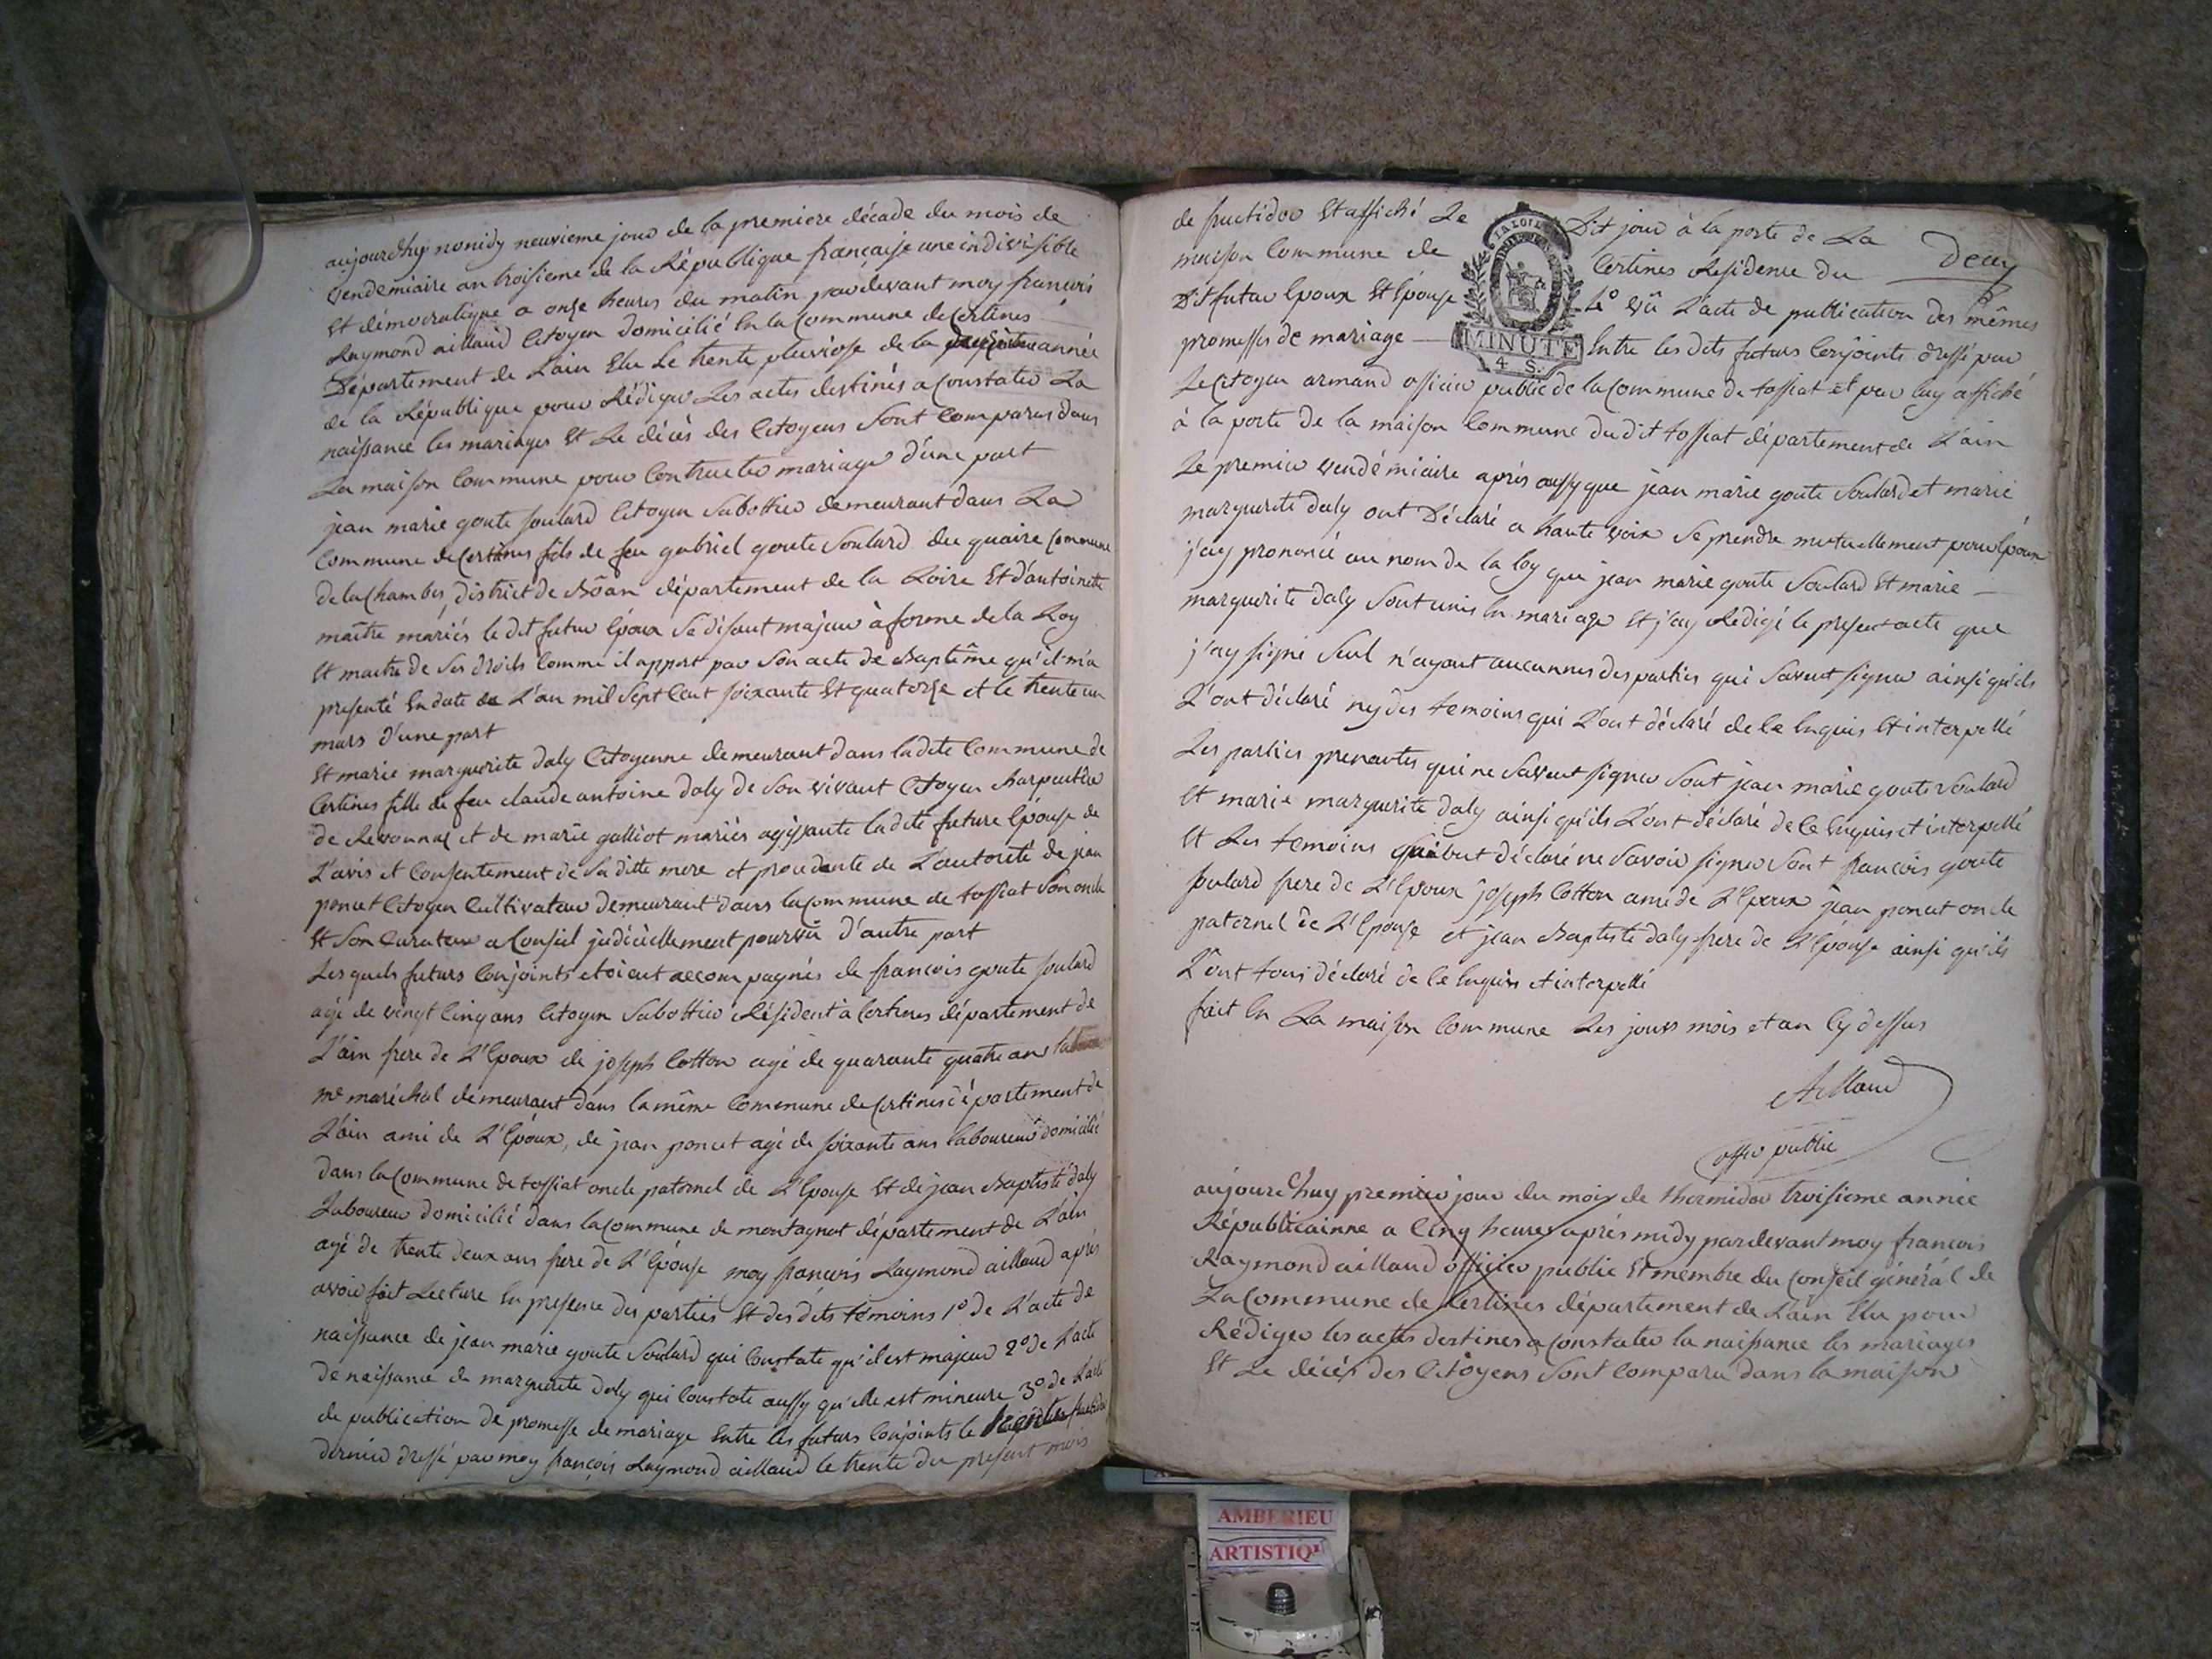 aujourdhuy nonidy neuvieme jour de la premiere décade du mois de
vendémiaire an troisieme de la République française une indivisible
et démocratique a onze heures du matin pardevant moy françois
Raymond aillaud Citoyen domicilié en la Commune de Certines
Département de L'ain Elu Le trente pluviose de la année
de la République pour Rédiger Les actes destinés a Constater La
naissance les mariages et Le décès des Citoyens Sont comparus dans
La maison Commune pour Contracter mariage d'une part
jean marie goute soulard Citoyen Sabottier demeurant dans La
Commune de Certines fils de feu gabriel goute Soulard du quaire Commune
de la Chambe, district de Bôan département de la Loire et d'antoinette
maître mariés le dit futur Epoux Se disant majeur à forme de la Loy
et maitre de Ses droits Comme il appert par Son acte de Baptême qu'il m'a
presenté En date de L'an mil Sept Cent soixante et quatorze et le trente un
mars d'une part
Et marie marguerite daly Citoyenne demeurant dans ladite Commune de
Certines fille de feu claude antoine daly de Son vivant Citoyen charpentier
de Revonnas et de marie galliot mariés agissante ladite future Epouse de
L'avis et Consentement de Sa ditte mere et procedante de L'autorité de jean
poncet Citoyen Cultivateur demeurant dans la Commune de tossiat Son oncle
et Son Curateur a Conseil judiciellement pourvû d'autre part
Lesquels futurs Conjoints etoient accompagnés de francois goute soulard
agé de vingt Cinq ans Citoyen Sabottier Résident à Certines département de
L'ain frere de L'Epoux de joseph Cotton agé de quarante quatre ans
me maréchal demeurant dans la même Commune de Certines département de
L'ain ami de L'Epoux, de jean poncet agé de soixante ans laboureur domicilié
dans la Commune de tossiat oncle paternel de L'Epouse et de jean Baptiste daly
Laboureur domicilié dans la Commune de montagnat département de L'ain
agé de trente deux ans frere de L'Epouse moy francois Raymond aillaud après
avoir fait Lecture En presence des parties et des dits témoins 1o de L'acte de
naissance de jean marie goute Soulard qui Constate qu'il est majeur 2o de L'acte
de naissance de marguerite daly qui Constate aussy qu'elle est mineure 3o de L'acte
de publication de promesse de mariage Entre les futurs Conjoints le fructidor
dernier dressé par moy françois Raymond aillaud le trente du present mois
de fructidor et affiché Le Dit jour à la porte de La
deux
maison Commune de Certines Residence du
Dit futur Epoux et Epouse 4o vû L'acte de publication des mêmes
promesses de mariage Entre les dits futurs Conjoints dressé par
LA LOI
MINUTE
4 S.
Le Citoyen armand officier public de la Commune de tossiat et par luy affiché
à la porte de la maison Commune du dit tossiat département de L'ain
Le premier vendémiaire après aussy que jean marie goute Soulard et marie
marguerite daly ont Déclaré a haute voix Se prendre mutuellement pour Epoux
j'ay prononcé au nom de la loy que jean marie goute Soulard et marie
marguerite daly Sont unis En mariage et j'ay Redigé le present acte que
j'ay signé Seul n'ayant aucunnes des parties qui Savent signer ainsi qu'ils
L'ont déclaré ny des temoins qui L'ont déclaré de ce Enquis et interpellé
Les parties prenantes qui ne Savent signer Sont jean marie goute Soulard
et marie marguerite daly ainsi qu'ils L'ont déclaré de ce Enquis et interpellé
et Les temoins qui ont déclaré ne Savoir signer Sont francois goute
soulard frere de L'Epoux joseph Cotton ami de L'Epoux jean poncet oncle
paternel de L'Epouse et jean Baptiste daly frere de L'Epouse ainsi qu'ils
L'ont tous déclaré de ce Enquis et interpellé
fait En La maison Commune Les jours mois et an Cy dessus
Aillaud
offier public
aujourdhuy premier jour du mois de thermidor troisieme année
Républicainne a Cinq heures après midy pardevant moy francois
Raymond aillaud officier public et membre du Conseil général de
La Commune de Certines département de L'ain Elu pour
Rédiger les actes destines a Constater la naissance les mariages
et Le décés des Citoyens Sont Comparu dans la maison
AMBERIEU
ARTISTIQ